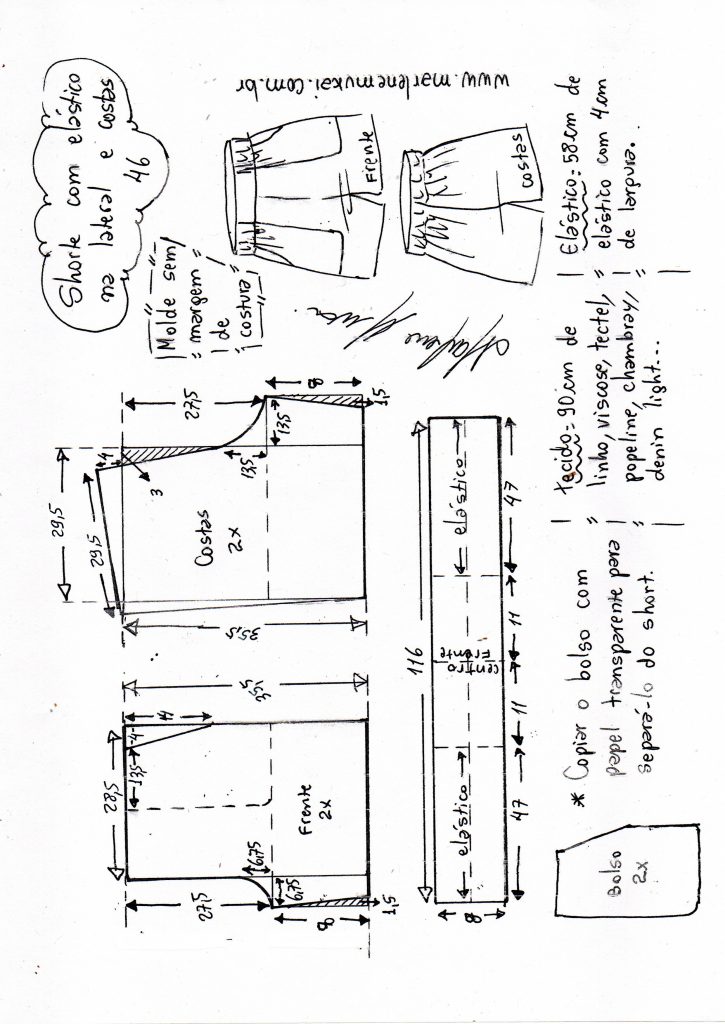 Shorte com elástico
na lateral e costas
46
Molde sem
margem
de
costura
www.marlenemukai.com.br
Frente
costas
28,5
13,5
4
14
35,5
27,5
6,75
6,75
8
1,5
Frente
2x
29,5
29,5
4
3
35,5
27,5
13,5
13,5
8
1,5
Costas
2x
116
elástico
centro
Frente
elástico
8
47
11
11
47
Bolso
2x
* Copiar o bolso com
papel transparente para
separá-lo do short.
tecido = 90cm de
linho, viscose, tectel,
popeline, chambray,
denin light...
Elástico = 58cm de
elástico com 4cm
de largura.